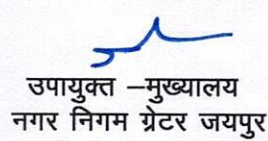 उपायुक्त –मुख्यालय
नगर निगम ग्रेटर जयपुर